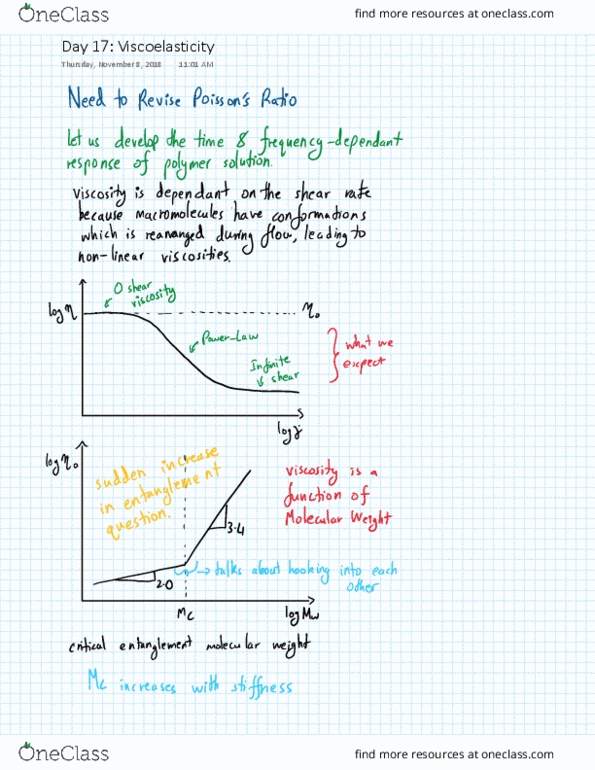 OneClass
find more resources at oneclass.com
Day 17: Viscoelasticity
Thursday, November 8, 2018 11:01 AM
Need to Revise Poisson's Ratio
Let us develop the time & frequency-dependant
response of polymer solution.
Viscosity is dependant on the shear rate
because macromolecules have conformations
which is rearranged during flow, leading to
non-linear viscosities.
0 shear
viscosity
log η
η₀
Power-Law
what we
expect
Infinite
shear
log γ̇
log η₀
sudden increase
in entanglement
question.
viscosity is a
function of
Molecular Weight
3.4
→ talks about hooking into each
other
2.0
Mc
log Mw
critical entanglement molecular weight
Mc increases with stiffness
OneClass
find more resources at oneclass.com